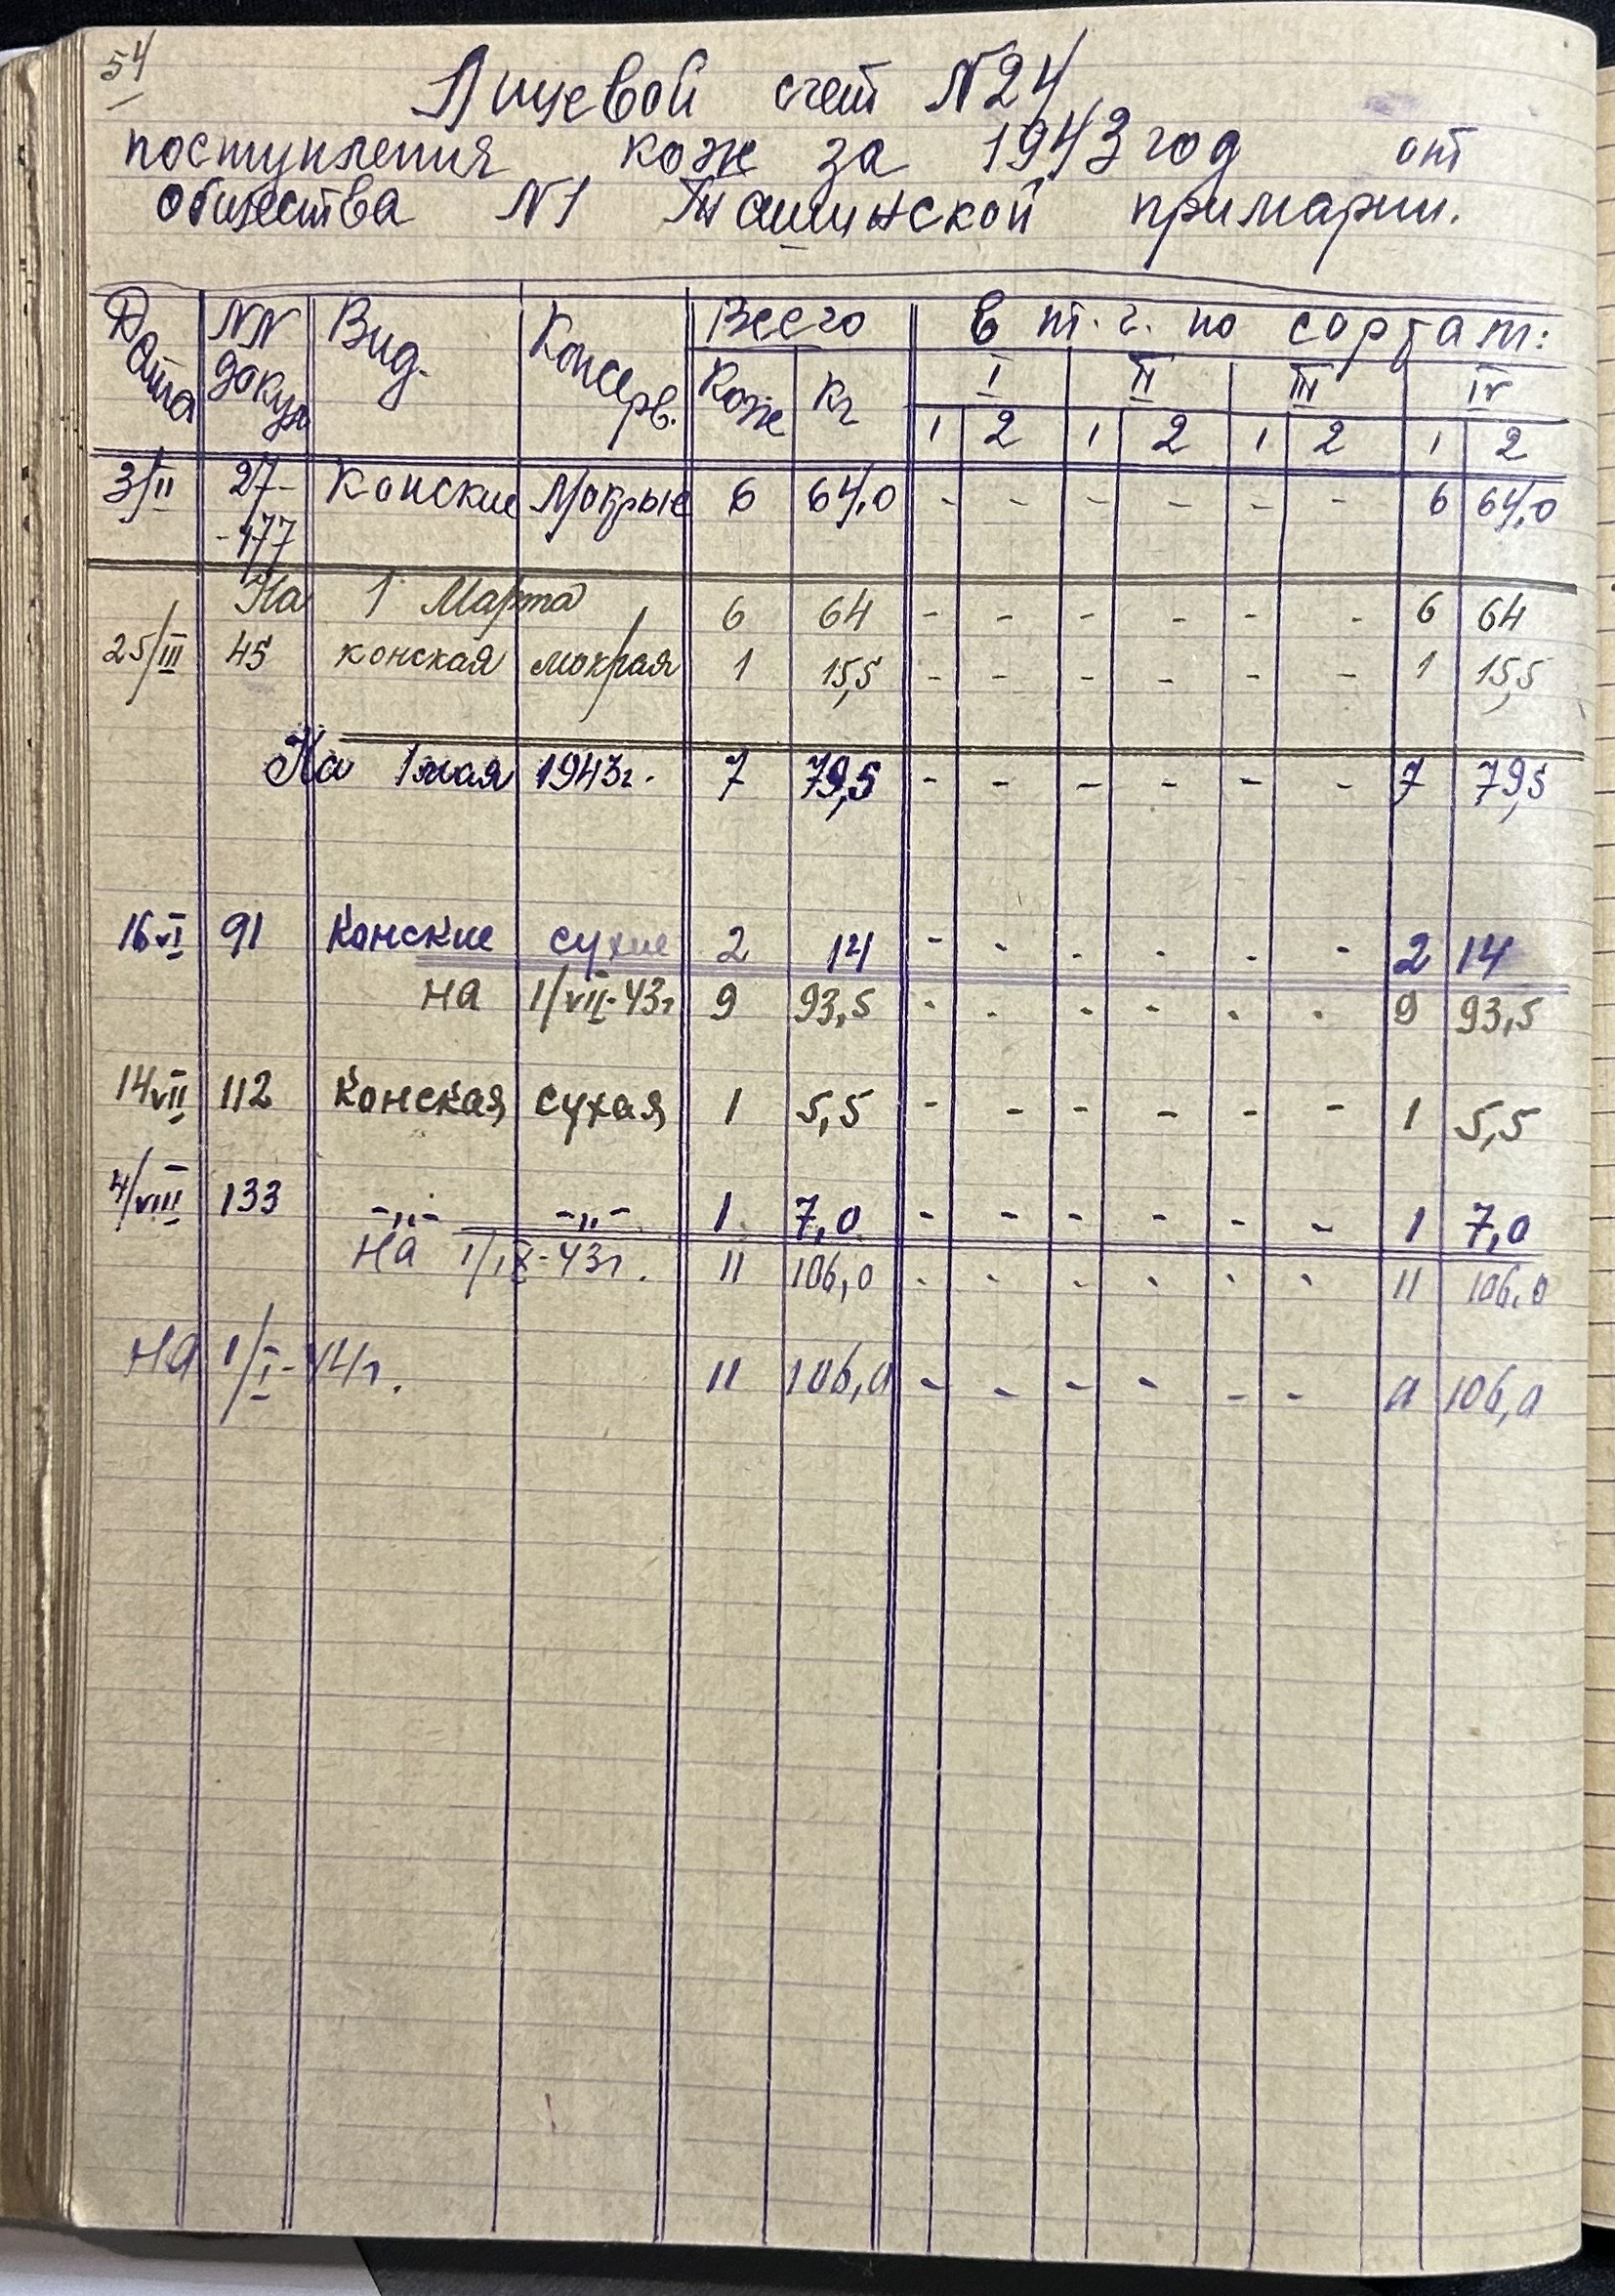 54
Лицевой счет N24
поступления кож за 1943 год от
общества N1 Ташинской примарии.
Дата NN докум Вид. Консерв. Всего в т. ч. по сортам:
Кож Кг I II III IV
1 2 1 2 1 2 1 2
3/II 27- Конские Мокрые 6 64,0 - - - - - - 6 64,0
-177
На 1 Марта 6 64 - - - - - - 6 64
25/III 45 конская мокрая 1 15,5 - - - - - - 1 15,5
На 1 мая 1943г. 7 79,5 - - - - - - 7 79,5
16 VI 91 Конские сухие 2 14 - - - - - - 2 14
на 1/VII-43г 9 93,5 - - - - - - 9 93,5
14 VII 112 Конская сухая 1 5,5 - - - - - - 1 5,5
4/VIII 133 -„- -„- 1 7,0 - - - - - - 1 7,0
на 1/IX-43г. 11 106,0 - - - - - - 11 106,0
на 1/I-44г. 11 106,0 - - - - - - 11 106,0